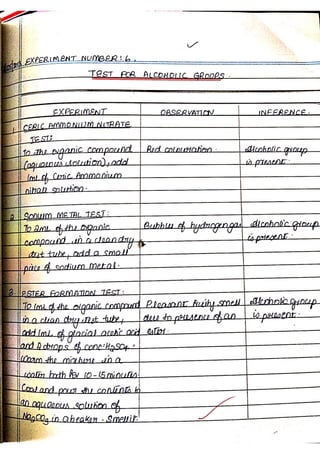 EXPERIMENT NUMBER: 6.
TEST FOR ALCOHOLIC GROUPS.
EXPERIMENT OBSERVATION INFERENCE
1. CERIC AMMONIUM NITRATE
TEST:
To the organic compound Red colouration. Alcoholic group
(aqueous solution), add is present.
1ml of Ceric Ammonium
nitrate solution.
2. SODIUM METAL TEST:
To 2ml of the organic Bubbles of hydrogen gas Alcoholic group
compound in a clean dry is present.
test tube, add a small
piece of sodium metal.
3. ESTER FORMATION TEST:
To 1ml of the organic compound Pleasant fruity smell Alcoholic group
in a clean dry test tube, due to presence of an is present.
add 1ml of glacial acetic acid ester.
and 2 drops of conc. H2SO4.
Warm the mixture in a
water bath for 10-15 minutes.
Cool and pour the contents in
an aqueous solution of
Na2CO3 in a beaker. Smell it.